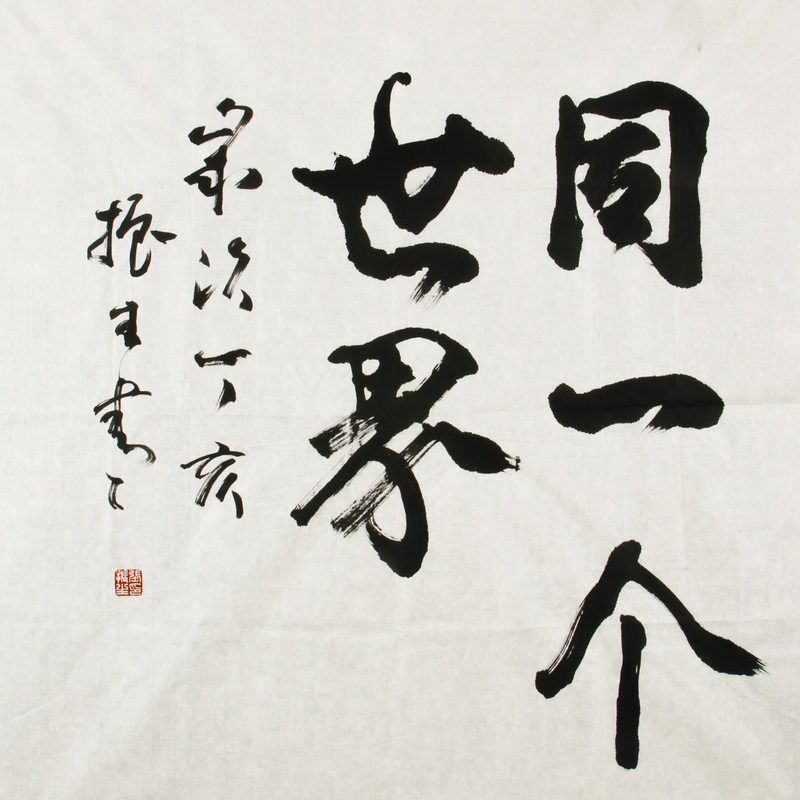 同一个
世界
歲次丁亥
振生書之